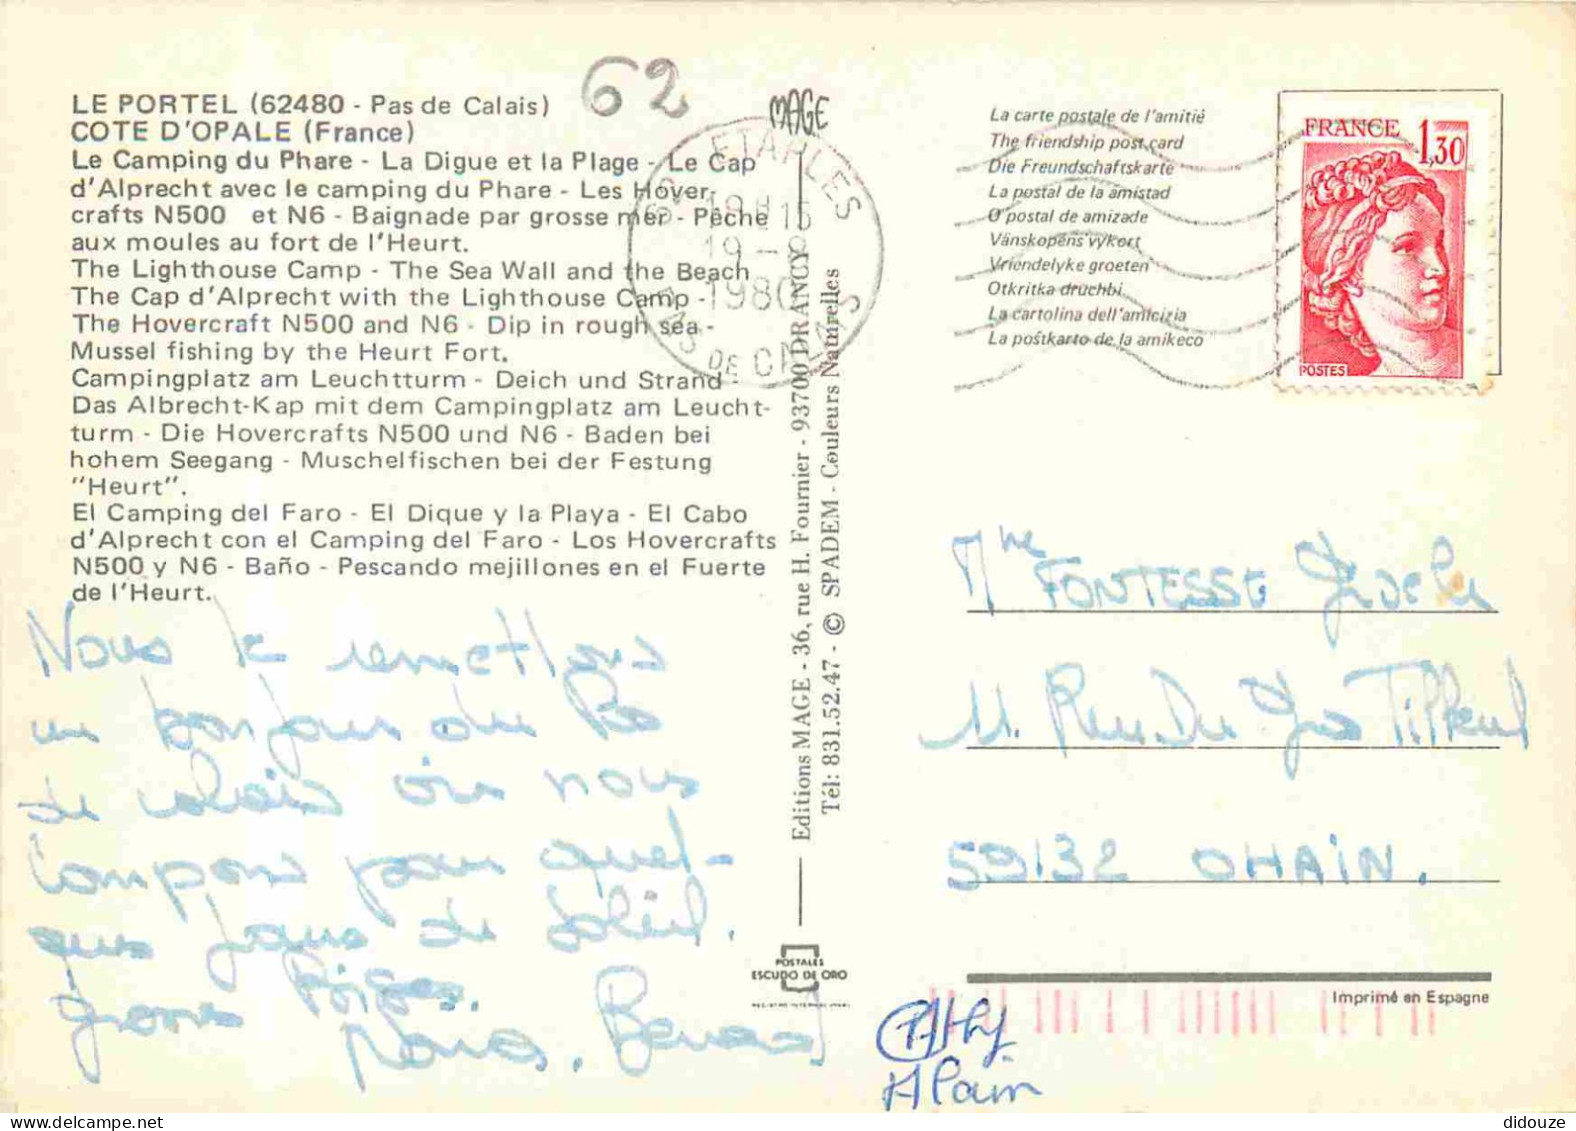 62
LE PORTEL (62480 - Pas de Calais)
COTE D'OPALE (France)
Le Camping du Phare - La Digue et la Plage - Le Cap
d'Alprecht avec le camping du Phare - Les Hover-
crafts N500 et N6 - Baignade par grosse mer - Pêche
aux moules au fort de l'Heurt.
The Lighthouse Camp - The Sea Wall and the Beach
The Cap d'Alprecht with the Lighthouse Camp -
The Hovercraft N500 and N6 - Dip in rough sea -
Mussel fishing by the Heurt Fort.
Campingplatz am Leuchtturm - Deich und Strand -
Das Albrecht-Kap mit dem Campingplatz am Leucht-
turm - Die Hovercrafts N500 und N6 - Baden bei
hohem Seegang - Muschelfischen bei der Festung
"Heurt".
El Camping del Faro - El Dique y la Playa - El Cabo
d'Alprecht con el Camping del Faro - Los Hovercrafts
N500 y N6 - Baño - Pescando mejillones en el Fuerte
de l'Heurt.
Nous te remettons
un bonjour du Pas
de calais où nous
Campons pour quel-
ques jours de Soleil.
grosses Bises.
Bernard
MAGE
62 ETAPLES
19H15
19-9
1980
PAS DE CALAIS
Editions MAGE - 36, rue H. Fournier - 93700 DRANCY
Tél: 831.52.47 - © SPADEM - Couleurs Naturelles
POSTALES
ESCUDO DE ORO
La carte postale de l'amitié
The friendship post card
Die Freundschaftskarte
La postal de la amistad
O postal de amizade
Vänskopens vykort
Vriendelyke groeten
Otkritka druchbi
La cartolina dell'amicizia
La poŝtkarto de la amikeco
FRANCE
1,30
POSTES
Mme FONTESSE
11. Rue Du Gros Tilleul
59132 OHAIN.
Imprimé en Espagne
CAthy
Alain
didouze